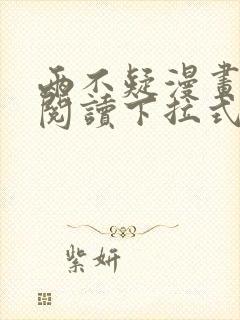 兩不疑漫畫
閱讀下拉式
紫妍